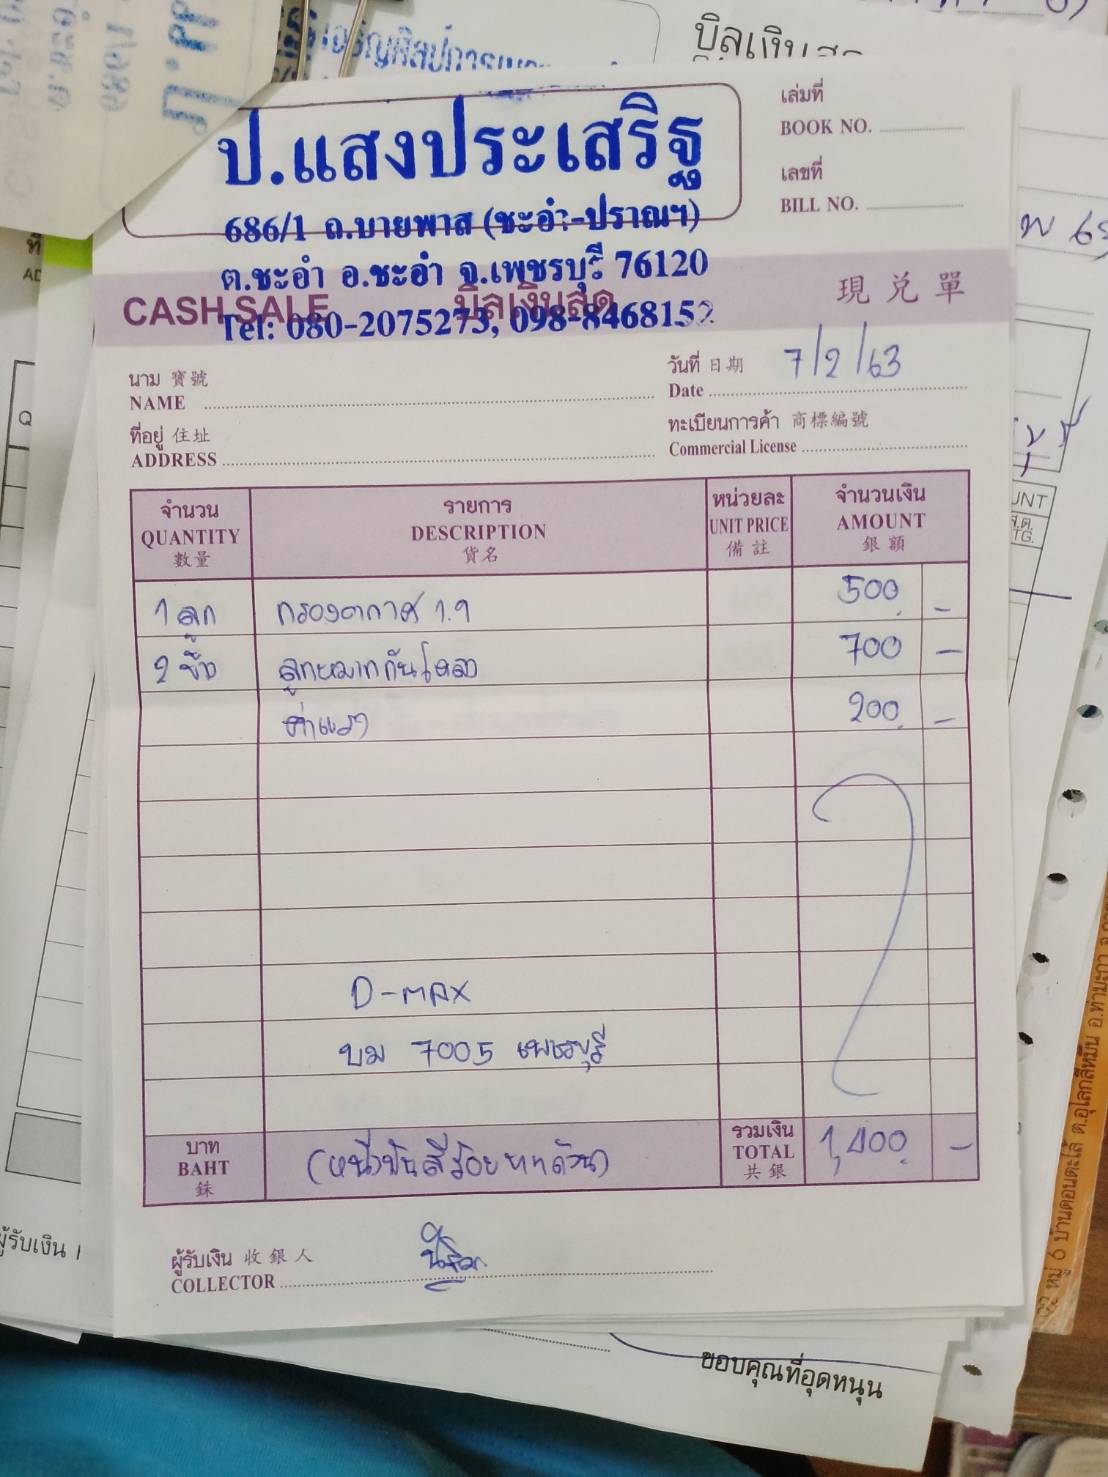 บิลเงินสด
ป.แสงประเสริฐ
686/1 ถ.บายพาส (ชะอำ-ปราณฯ)
ต.ชะอำ อ.ชะอำ จ.เพชรบุรี 76120
Tel: 080-2075273, 098-8468152
เล่มที่
BOOK NO.
เลขที่
BILL NO.
CASH SALE บิลเงินสด 現兑單
นาม 寳號
NAME
วันที่ 日期 7/2/63
Date
ที่อยู่ 住址
ADDRESS
ทะเบียนการค้า 商標編號
Commercial License
จำนวน รายการ หน่วยละ จำนวนเงิน
QUANTITY DESCRIPTION UNIT PRICE AMOUNT
數量 貨名 備註 銀額
1 ลูก กรองอากาศ 1.9 500 -
2 ชิ้น ลูกหมากกันโคลง 700 -
ค่าแรง 200 -
D-MAX
บม 7005 เพชรบุรี
บาท
BAHT
銖
(หนึ่งพันสี่ร้อยบาทถ้วน)
รวมเงิน
TOTAL
共銀
1,400 -
ผู้รับเงิน 收銀人
COLLECTOR
ผู้รับเงิน
ขอบคุณที่อุดหนุน